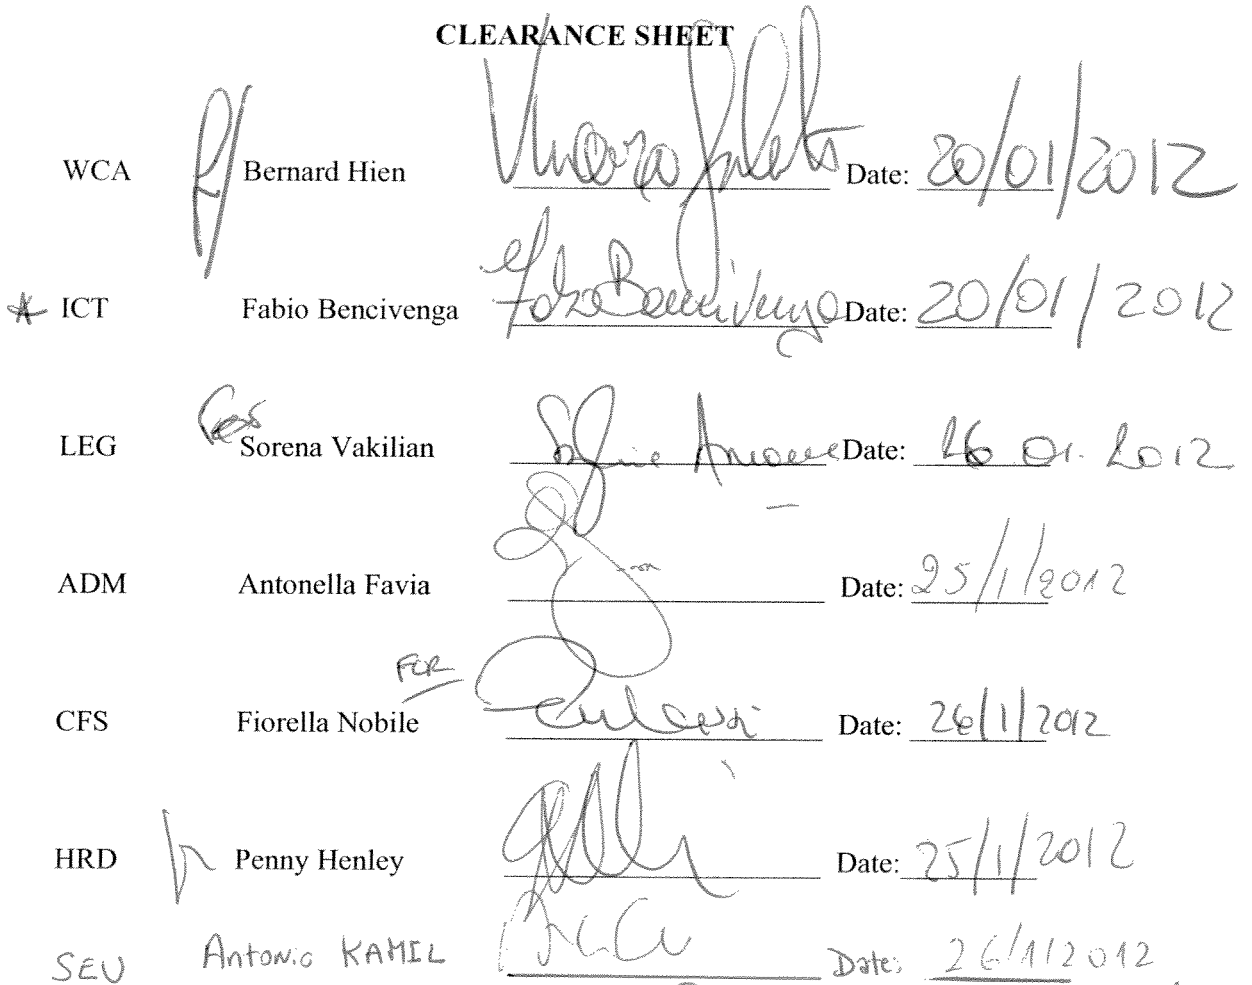 CLEARANCE SHEET
WCA Bernard Hien Date: 20/01/2012
* ICT Fabio Bencivenga Fabio Bencivenga Date: 20/01/2012
LEG For Sorena Vakilian Date: 26.01.2012
ADM Antonella Favia Date: 25/1/2012
FOR
CFS Fiorella Nobile Date: 26/1/2012
HRD Penny Henley Date: 25/1/2012
SEU Antonio KAMIL Date: 26/1/2012